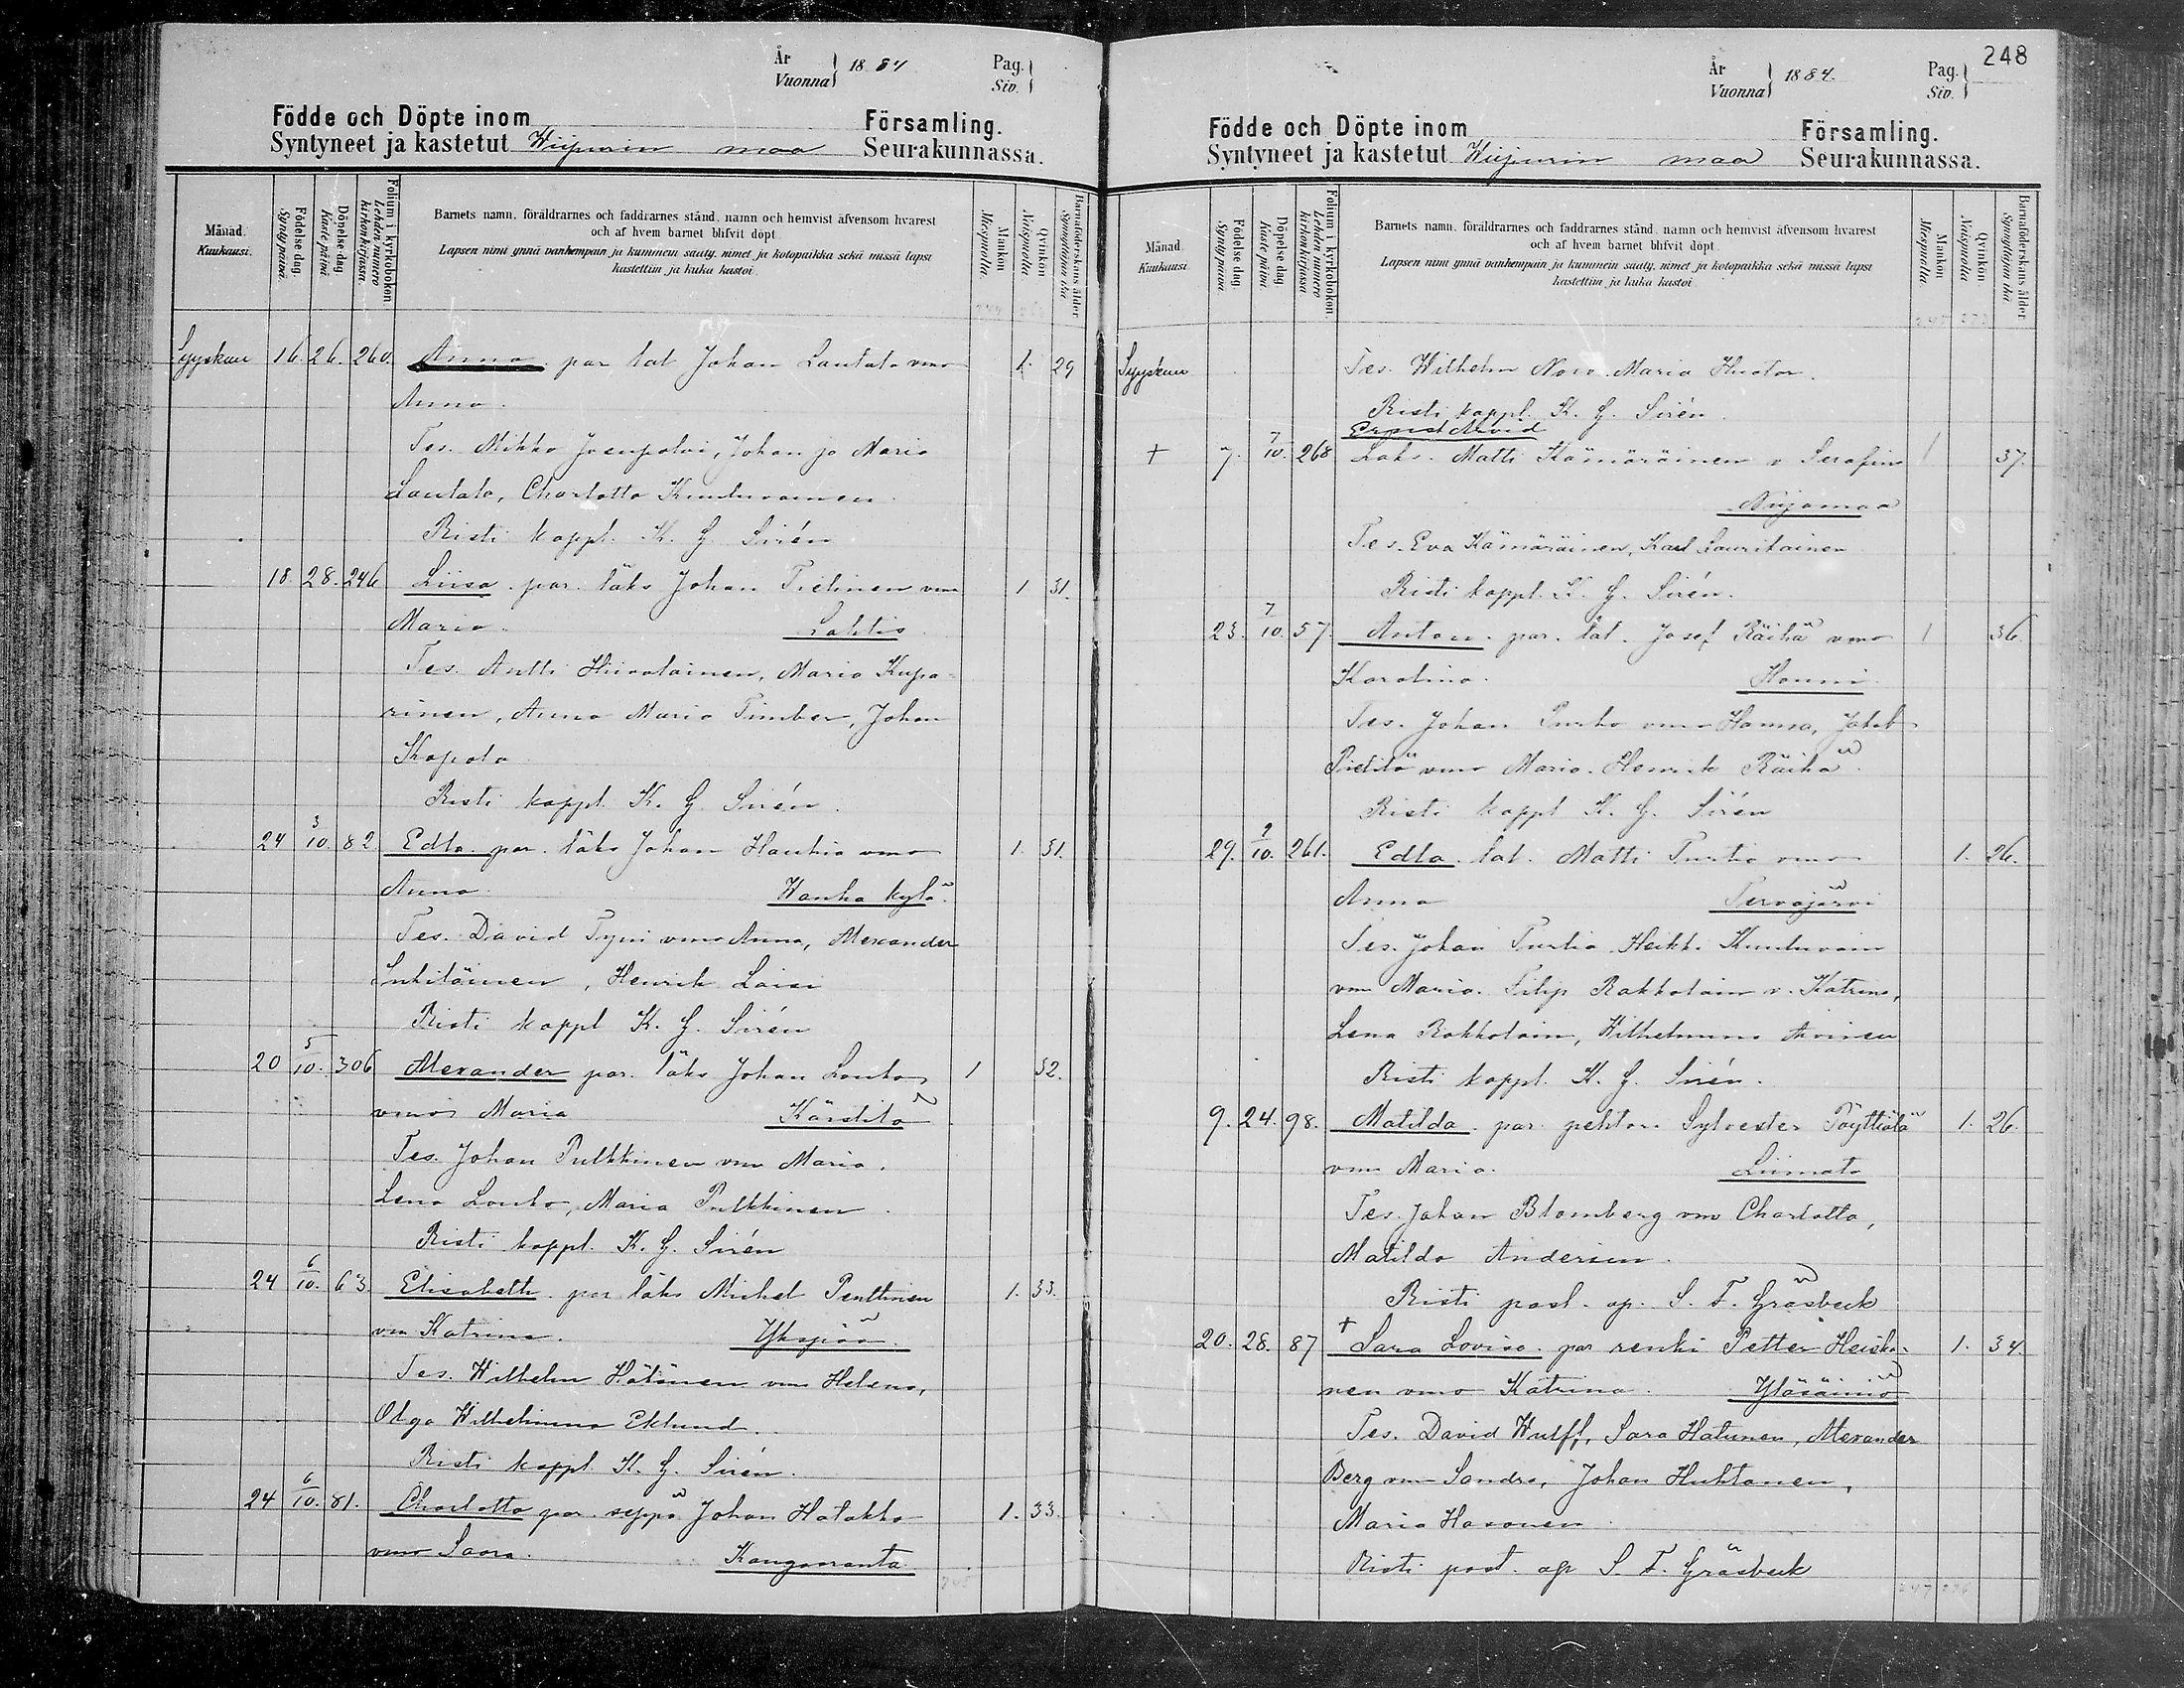 År
Vuonna
1884
Pag.
Siv.
Födde och Döpte inom
Församling.
Syntyneet ja kastetut Wiipurin maa Seurakunnassa.
Månad.
Kuukausi.
Födelse dag.
Synty päivä.
Döpelse dag.
Kaste päivä.
Folium i kyrkoboken.
Lehden numero kirkonkirjassa.
Barnets namn, föräldrarnes och faddrarnes stånd, namn och hemvist äfvensom hvarest
och af hvem barnet blifvit döpt.
Lapsen nimi ynnä vanhempain ja kummein sääty, nimet ja kotopaikka sekä missä lapsi
kastettiin ja kuka kastoi.
Mankön.
Miespuolta.
Qvinkön.
Naispuolta.
Barnaföderskans ålder.
Synnyttäjän ikä.
Syyskuu 16. 26. 260. Anna par. lat Johan Lautala vmo 1. 29
Anna.
Tes. Mikko Joenpolvi, Johan ja Maria
Lautala, Charlotta Kuuluvainen.
Risti kappl. K. G. Sirén
18. 28. 246 Liisa par. läks Johan Tielinen vmo 1 31.
Maria. Lahtis
Tes. Antti Hiivolainen, Maria Kupa-
rinen, Anna Maria Timber, Johan
Kapola
Risti kappl. K. G. Sirén.
24 3/10. 82 Edla par. läks Johan Haukia vmo 1. 31.
Anna. Wanha kylä.
Tes. David Tyni vmo Anna, Alexander
Inkiläinen, Henrik Laisi
Risti kappl K. G. Sirén
20 5/10. 306 Alexander par. läks Johan Louko 1 32.
vmo Maria Kärstilä
Tes. Johan Pulkkinen vmo Maria.
Lena Louko, Maria Pulkkinen.
Risti kappl. K. G. Sirén
24 6/10. 63. Elisabeth par läks Michel Penttinen 1. 33.
vm Katrina. Ykspää.
Tes. Wilhelm Hätönen vmo Helena,
Olga Wilhelmina Eklund.
Risti kappl. K. G. Sirén.
24 6/10. 81. Charlotta par. seppä Johan Hatakka 1. 33.
vmo Saara. Kangasranta
248
År
Vuonna
1884.
Pag.
Siv.
Födde och Döpte inom
Församling.
Syntyneet ja kastetut Wiipurin maa Seurakunnassa.
Månad.
Kuukausi.
Födelse dag.
Synty päivä.
Döpelse dag.
Kaste päivä.
Folium i kyrkoboken.
Lehden numero kirkonkirjassa.
Barnets namn, föräldrarnes och faddrarnes stånd, namn och hemvist äfvensom hvarest
och af hvem barnet blifvit döpt.
Lapsen nimi ynnä vanhempain ja kummein sääty, nimet ja kotopaikka sekä missä lapsi
kastettiin ja kuka kastoi.
Mankön.
Miespuolta.
Qvinkön.
Naispuolta.
Barnaföderskans ålder.
Synnyttäjän ikä.
Syyskuu Tes. Wilhelm Novo. Maria Huotar.
Risti kappl. K. G. Sirén
Ernest Arvid
+ 7. 7/10. 268 Läks. Matti Kämäräinen v Serafina 1 37.
Nuijamaa
Tes. Eva Kämäräinen, Karl Lauritainen
Risti kappl. K. G. Sirén.
23. 7/10. 57. Anton. par. lat. Josef Räihä vmo 1 36.
Karolina. Houni.
Tes. Johan Purho vmo Hanna, Jakob
Pietilä vmo Maria. Henrik Räihä.
Risti kappl K. G. Sirén
29. 2/10. 261. Edla. lat. Matti Turtia vmo 1. 26.
Anna Tervajärvi
Tes. Johan Turtia Heikki Kuuluvain
vm Maria. Filip Rakkolain v. Katrina,
Lena Rakkolain, Wilhelmina Avinen
Risti kappl. K. G. Sirén.
9. 24. 98. Matilda par. pehtor. Sylvester Pöyttiälä 1. 26.
vmo Maria. Liimata
Tes. Johan Blomberg vmo Charlotta,
Matilda Andersin.
Risti past. ap. S. F. Gräsbeck
20. 28. 87 + Sara Lovisa par renki Petter Heiska- 1. 34.
nen vmo Katrina. Yläsäiniö
Tes. David Wulff, Sara Hatunen, Alexander
Berg vmo Sandra, Johan Huhtanen,
Maria Hasonen
Risti past. ap S. F. Gräsbeck